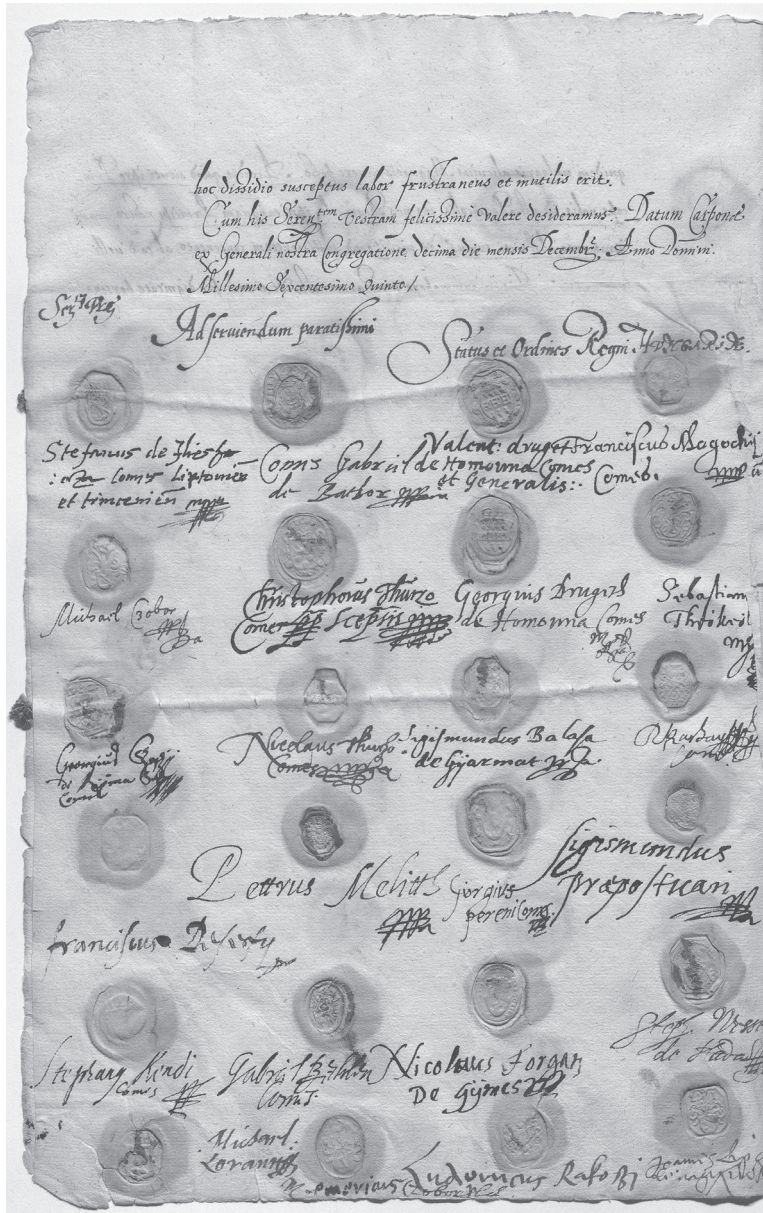 hoc dissidio susceptus labor frustraneus et inutilis erit.
Cum his Seren^tem Vestram felicissime valere desideramus. Datum Carponæ
ex Generali nostra Congregatione, decima die mensis Decembr. Anno Domini.
Millesimo Sexcentesimo Quinto/.
Adserviendum paratissimi
Status et Ordines Regni
Stefanus de
Comes Liptovien
et trincenien
Comes Gabriel
de Bathor
Valent: druget
de Homonna Comes
et Generalis:.
Franciscus Magochij
Comes.
Michael Czobor
Christophorus Thurzo
Comes Scepüs
Georgius Drugeth
de Homonna Comes
Sebastian
Georgius
Comes
Nicolaus Thurzo
Comes
Sigismundus Balasa
de Gyarmat
Pettrus Melitth
Gorgius
pereni Comes
Sigismundus
præpostuari
Franciscus
Stephanus Kendi
Comes
Gabriel Bethlen
Comes
Nicolaus Forgatz
De Gÿmes
Michael
Lorantfi
Ludovicus Rakotzi